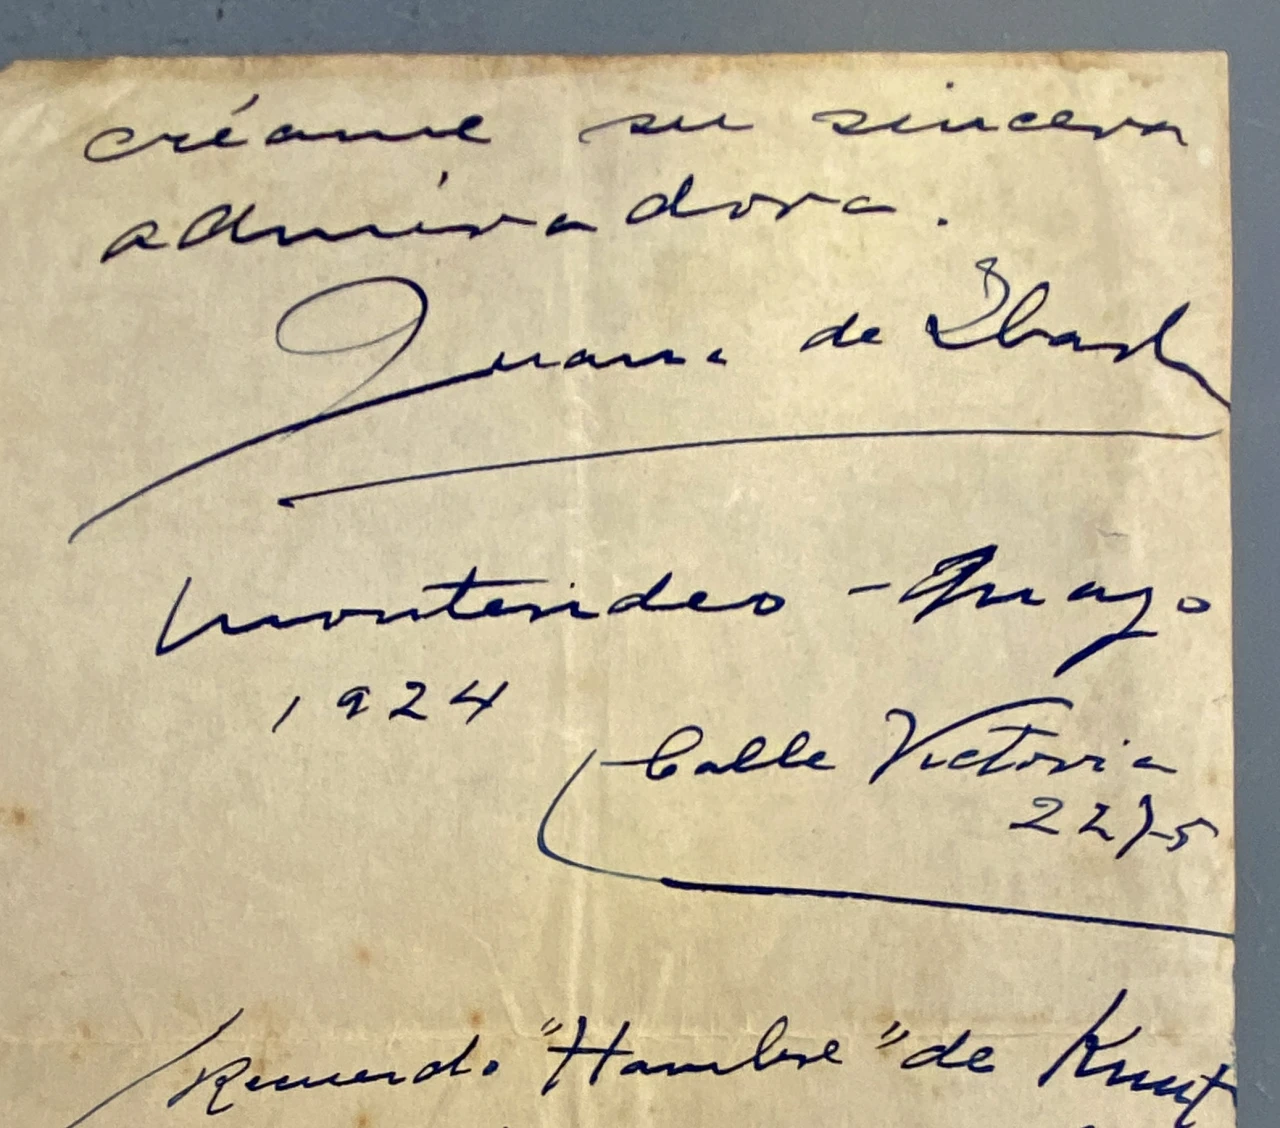 créame su sincera
admiradora.
Juana de Ibarb
Montevideo - Mayo
1924
Calle Victoria
2275
Recuerdo "Hambre" de Knut